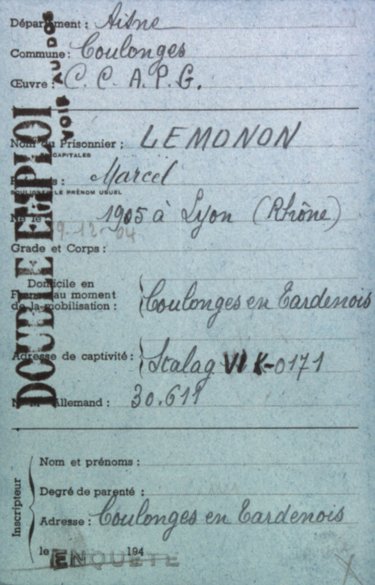 Département : Aisne
Commune : Coulonges
Œuvre : C. C. A. P. G.
DOUBLE EMPLOI
VOIR AU DOS
Nom du Prisonnier : LEMONON
CAPITALES
: Marcel
LE PRÉNOM USUEL
Né le 1905 à Lyon (Rhône)
Grade et Corps :
Domicile en
au moment
de la mobilisation : Coulonges en Tardenois
Adresse de captivité : Stalag VI K-0171
Allemand : 30.611
Inscripteur
Nom et prénoms :
Degré de parenté :
Adresse : Coulonges en Tardenois
le 194
ENQUETE